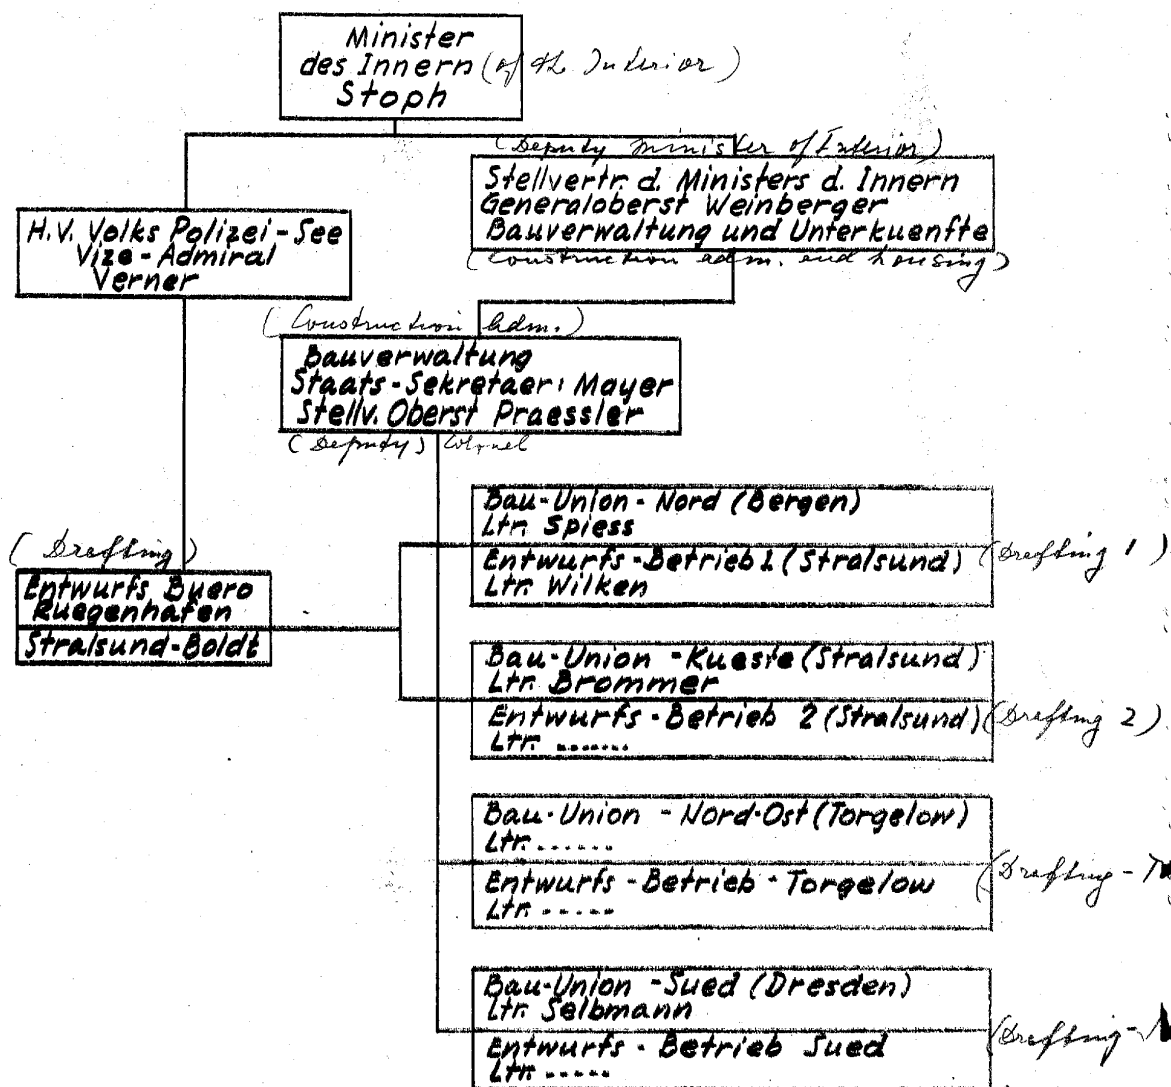 Minister
des Innern (of the Interior)
Stoph
(Deputy minister of Interior)
Stellvertr. d. Ministers d. Innern
Generaloberst Weinberger
Bauverwaltung und Unterkuenfte
(Construction adm. and housing)
H.V. Volks Polizei-See
Vize-Admiral
Verner
(Construction Adm.)
Bauverwaltung
Staats-Sekretaer: Mayer
Stellv. Oberst Praessler
(Deputy) Colonel
(Drafting)
Entwurfs Buero
Ruegenhafen
Stralsund-Boldt
Bau-Union-Nord (Bergen)
Ltr. Spiess
Entwurfs-Betrieb 1 (Stralsund) (Drafting 1)
Ltr. Wilken
Bau-Union-Kueste (Stralsund)
Ltr. Brommer
Entwurfs-Betrieb 2 (Stralsund) (Drafting 2)
Ltr. .......
Bau-Union-Nord-Ost (Torgelow)
Ltr. ......
Entwurfs-Betrieb-Torgelow (Drafting-
Ltr. .....
Bau-Union-Sued (Dresden)
Ltr. Selbmann
Entwurfs-Betrieb Sued (Drafting-
Ltr. .....